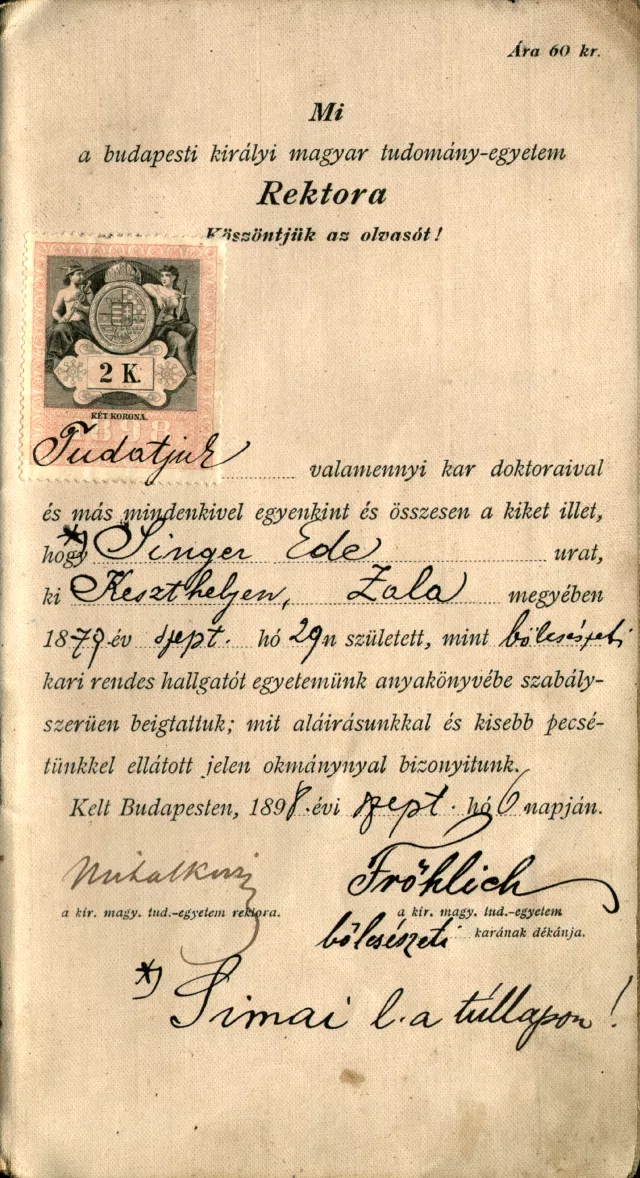 Ára 60 kr.
Mi
a budapesti királyi magyar tudomány-egyetem
Rektora
Köszöntjük az olvasót!
2 K.
KÉT KORONA.
898
Tudatjuk valamennyi kar doktoraival
és más mindenkivel egyenkint és összesen a kiket illet,
hogy *) Singer Ede urat,
ki Keszthelyen, Zala megyében
1879 év szept. hó 29n született, mint bölcsészeti
kari rendes hallgatót egyetemünk anyakönyvébe szabály-
szerüen beigtattuk; mit aláirásunkkal és kisebb pecsé-
tünkkel ellátott jelen okmánynyal bizonyitunk.
Kelt Budapesten, 1898. évi szept. hó 6 napján.
Mihalkovics Fröhlich
a kir. magy. tud.-egyetem rektora. a kir. magy. tud.-egyetem
bölcsészeti karának dékánja.
*) Simai l. a túllapon!